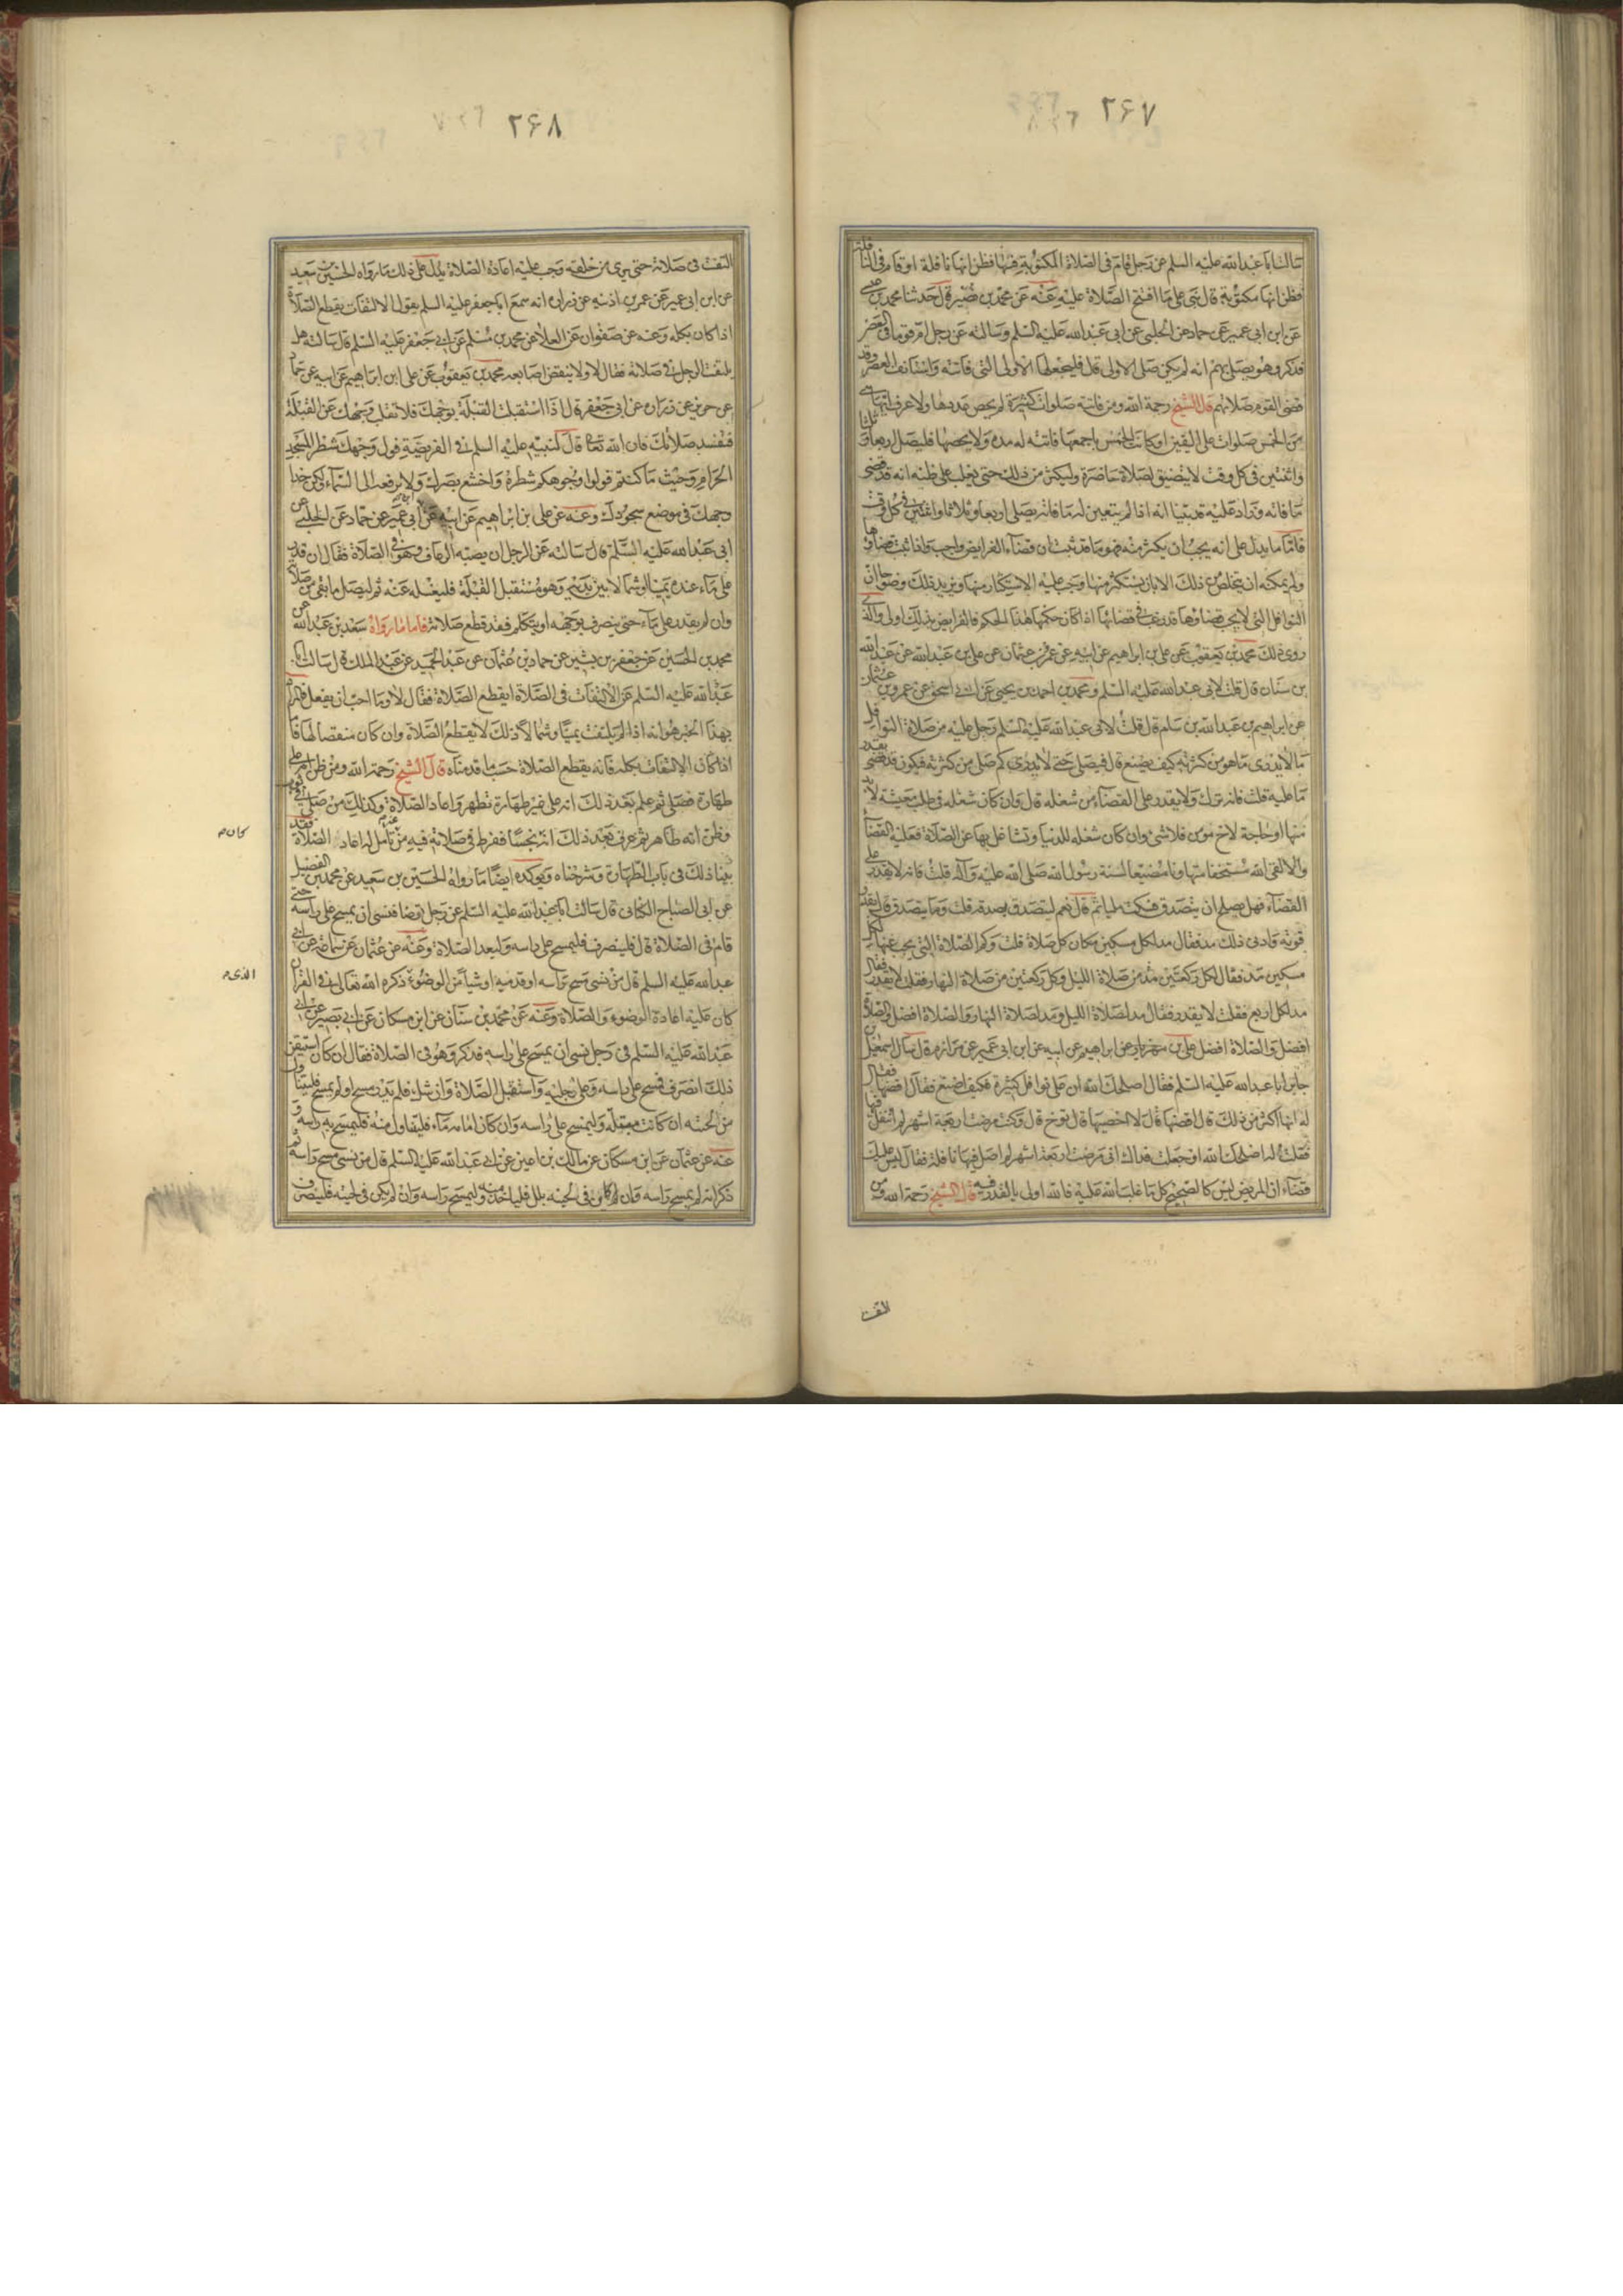 ۲۶۷
سالت ابا عبدالله عليه السلم عن رجل قام فى الصلاة المكتوبة فسها فظن انها نافلة او قام فى النافلة
فظن انها مكتوبة قال هى على ما افتتح الصلاة عليه وعنه عن محمد بن نصير قال حدثنا محمد بن عيسى
عن ابن ابى عمير عن حماد عن الحلبى عن ابى عبدالله عليه السلم وسالته عن رجل ام قوما فى العصر
فذكر وهو يصلى بهم انه لم يكن صلى الاولى قال فليجعلها الاولى التى فاتته واستانف العصر وقد
قضى القوم صلاتهم قال الشيخ رحمة الله ومن فاتته صلوات كثيرة لم يحص عددها ولا عرف ايتها هى
من الخمس صلوات على اليقين او كانت الخمس باجمعها فاتته له مدة ولا يحصها فليصل اربعا وثلثا
واثنتين فى كل وقت لا يتضيق لصلاة حاضرة وليكثر من ذلك حتى يغلب على ظنه انه قد قضى
ما فاته وزاد عليه قد بينا انه اذا لم يتعين له ما فاته يصلى اربعا وثلاثا واثنتين فى كل وقت
فاما ما يدل على انه يجب ان يكثر منه فهو ما قد ثبت ان قضاء الفرايض واجب واذا ثبت قضاوها
ولم يمكنه ان يتخلص من ذلك الا بان يستكثر منها وجب عليه الاستكثار منها ويزيد ذلك وضوحا ان
النوافل التى لا يجب قضاوها قد رغب فى قضائها اذا كان حكمها هذا الحكم فالفرايض بذلك اولى والذى
روى ذلك محمد بن يعقوب عن على بن ابراهيم عن ابيه عن عمرو بن عثمان عن على بن عبدالله عن عبدالله
بن سنان قال قلت لابى عبدالله عليه السلم ومحمد بن احمد بن يحيى عن ابى اسحق عن عمرو بن عثمان
عن ابراهيم بن عبدالله بن سام قال قلت لابى عبدالله عليه السلم رجل عليه من صلاة النوافل
ما لا يدرى ما هو من كثرته كيف يصنع قال فيصلى حتى لا يدرى كم صلى من كثرته فيكون قد قضى بقدر
ما عليه قلت فانه ترك ولا يقدر على القضاء من شغله قال وان كان شغله فى طلب معيشة لا بد
منها او حاجة لاخ مومن فلا شئ وان كان شغله للدنيا وتشاغل بها عن الصلاة فعليه القضاء
والا لقى الله مستخفا متهاونا مضيعا لسنة رسول الله صلى الله عليه وآله قلت فانه لا يقدر على
القضاء فهل يصلح ان يتصدق فسكت مليا ثم قال نعم ليتصدق بصدقة قلت وما يتصدق قال بقدر
قوته وادنى ذلك مد فقال مد لكل مسكين مكان كل صلاة قلت وكم الصلاة التى يجب عنها لكل
مسكين مد فقال لكل ركعتين مد من صلاة الليل وكل ركعتين من صلاة النهار فقلت لا يقدر فقال
مد لكل اربع فقلت لا يقدر فقال مد لصلاة الليل ومد لصلاة النهار والصلاة افضل والصلاة
افضل والصلاة افضل على بن مهزيار عن ابراهيم عن ابيه عن ابن ابى عمير عن مرازم قال سال اسمعيل
جابر ابا عبدالله عليه السلم فقال اصلحك الله ان على نوافل كثيرة فكيف اصنع فقال اقضها فقال
له انها اكثر من ذلك قال اقضها قال لا احصيها قال توخ قال وكنت مرضت اربعة اشهر لم اتنفل فيها
فقلت له اصلحك الله او جعلت فداك انى مرضت اربعة اشهر لم اصل فيها نافلة فقال ليس عليك
قضاء ان المريض ليس كالصحيح كل ما غلب الله عليه فالله اولى بالعذر فيه قال الشيخ رحمة الله ومن
التفت
۲۶۸
التفت فى صلاته حتى يرى من خلفه وجب عليه اعادة الصلاة يدل على ذلك ما رواه الحسين بن سعيد
عن ابن ابى عمير عن عمر بن اذينه عن زرارة انه سمع ابا جعفر عليه السلم يقول الالتفات يقطع الصلاة
اذا كان بكله وعنه عن صفوان عن العلا عن محمد بن مسلم عن ابى جعفر عليه السلم قال سالته هل
يلتفت الرجل فى صلاته فقال لا ولا ينقض اصابعه محمد بن يعقوب عن على ابن ابراهيم عن ابيه عن حماد
عن حريز عن زرارة عن ابى جعفر قال اذا استقبلت القبلة بوجهك فلا تقلب وجهك عن القبلة
فتفسد صلاتك فان الله تعا قال لنبيه عليه السلم فى الفريضة فول وجهك شطر المسجد
الحرام وحيث ما كنتم فولوا وجوهكم شطره واخشع ببصرك ولا ترفعه الى السماء وليكن حذا
وجهك فى موضع سجودك وعنه عن على بن ابراهيم عن ابيه عن ابن ابى عمير عن حماد عن الحلبى عن
ابى عبدالله عليه السلم قال سالته عن الرجل ان يصبه الرعاف وهو فى الصلاة فقال ان قدر
على ماء عنده يمينا او شمالا بين يديه وهو مستقبل القبلة فليغسله عنه ثم ليصل ما بقى من صلاته
وان لم يقدر على ماء حتى ينصرف بوجهه او يتكلم فقد قطع صلاته فاما ما رواه سعد بن عبدالله عن
محمد بن الحسين عن جعفر بن بشير عن حماد بن عثمان عن عبد الحميد عن عبد الملك قال سالت ابا
عبدالله عليه السلم عن الالتفات فى الصلاة ايقطع الصلاة فقال لا وما احب ان يفعل فالمراد
بهذا الخبر هو انه اذا لم يلتفت يمينا وشمالا لان ذلك لا يقطع الصلاة وان كان منقصا لها فا
اذا كان الالتفات بكله فانه يقطع الصلاة حسب ما قدمناه قال الشيخ رحمة الله ومن ظن انه على
طهارة فصلى ثم علم بعد ذلك انه على غير طهارة تطهر واعاد الصلاة وكذلك من صلى فى ثوب
وظن انه طاهر ثم عرف بعد ذلك انه نجسا ففرط فى صلاته فيه من تامل له اعاد الصلاة فقد
كان م
بينا ذلك فى باب الطهارة وشرحناه ويوكده ايضا ما رواه الحسين بن سعيد عن محمد بن الفضيل
عن ابى الصباح الكنانى قال سالت ابا عبدالله عليه السلم عن رجل توضا فنسى ان يمسح على راسه حتى
قام فى الصلاة قال فلينصرف فليمسح على راسه وليعد الصلاة وعنه عن عثمان عن سماعة عن ابى
عبدالله عليه السلم قال من نسى مسح راسه او قدميه او شيا من الوضوء ذكره الله تعالى فى القران
الذى م
كان عليه اعادة الوضوء والصلاة وعنه عن محمد بن سنان عن ابن مسكان عن ابى بصير عن ابى
عبدالله عليه السلم فى رجل نسى ان يمسح على راسه فذكر وهو فى الصلاة فقال ان كان استيقن
ذلك انصرف فمسح على راسه وعلى رجليه واستقبل الصلاة وان شك فلم يدر مسح او لم يمسح فليتناول
من لحيته ان كانت مبتلة وليمسح على راسه وان كان امامه ماء فليتناول منه فليمسح به راسه و
عنه عن عثمان عن ابن مسكان عن مالك بن اعين عن ابى عبدالله عليه السلم قال من نسى مسح راسه ثم
ذكر انه لم يمسح راسه فان كان فى لحيته بلل فلياخذ منه وليمسح راسه وان لم يكن فى لحيته فلينصرف